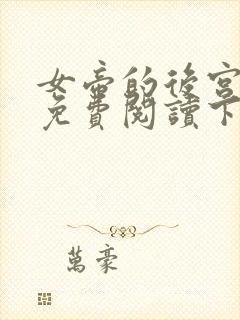 女帝的後宮
免費閱讀下
萬豪